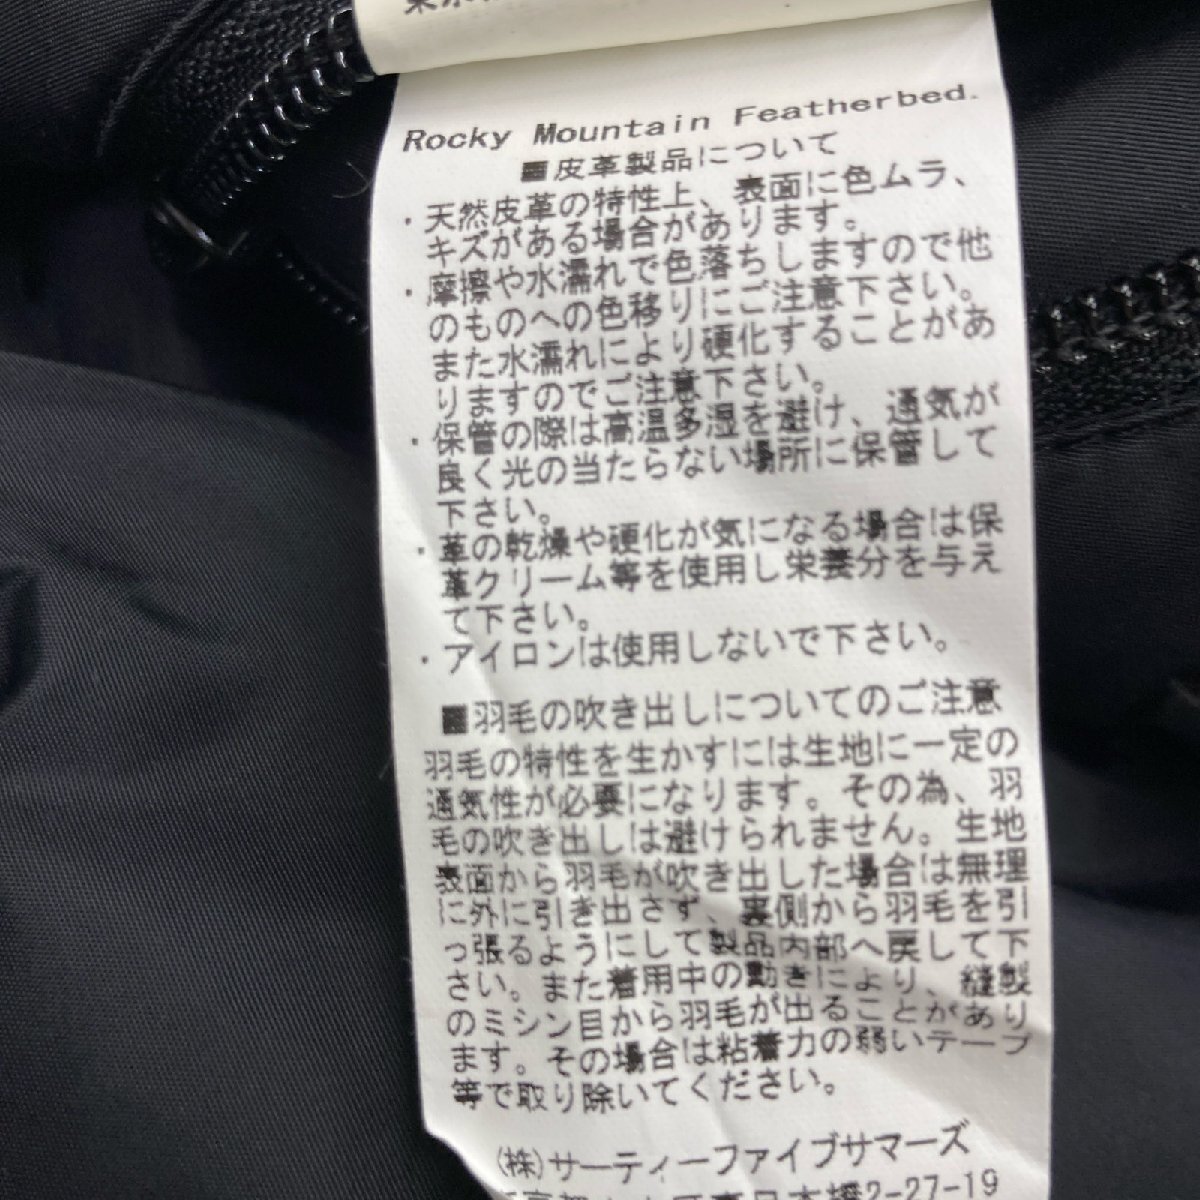 Rocky Mountain Featherbed.
■皮革製品について
・天然皮革の特性上、表面に色ムラ、
キズがある場合があります。
・摩擦や水濡れで色落ちしますので他
のものへの色移りにご注意下さい。
また水濡れにより硬化することがあ
りますのでご注意下さい。
・保管の際は高温多湿を避け、通気が
良く光の当たらない場所に保管して
下さい。
・革の乾燥や硬化が気になる場合は保
革クリーム等を使用し栄養分を与え
て下さい。
・アイロンは使用しないで下さい。
■羽毛の吹き出しについてのご注意
羽毛の特性を生かすには生地に一定の
通気性が必要になります。その為、羽
毛の吹き出しは避けられません。生地
表面から羽毛が吹き出した場合は無理
に外に引き出さず、裏側から羽毛を引
っ張るようにして製品内部へ戻して下
さい。また着用中の動きにより、縫製
のミシン目から羽毛が出ることがあり
ます。その場合は粘着力の弱いテープ
等で取り除いてください。
(株)サーティーファイブサマーズ
2-27-19